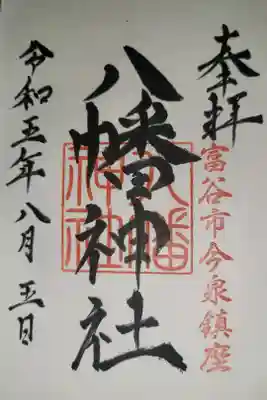 奉拝
富谷市今泉鎮座
八幡神社
八幡神社
令和五年八月五日